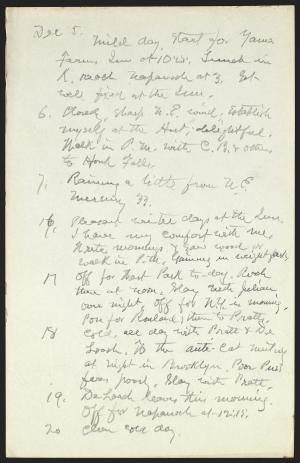 Dec 5. Mild day, start for Yama
Farms Inn at 10.20. Lunch in
K. reach Napanoch at 3. Get
well fixed at the Inn.
6. Cloudy, sharp N.E. wind, establish
myself at the Hut, delightful.
Walk in P.M. with C.B. & others
to Honk Falls.
7. Raining a little from N.E.
mercury 33.
16. Pleasant winter days at the Inn.
I have my comfort with me.
Write mornings & saw wood or
walk in P.M. Gaining in weight
17 Off for West Park to-day. Reach
there at noon. Stay with Julian
one night. Off for N.Y. in morning,
then to Pratts.
18 Cold, all day with Pratt & De
Loach. To the anti-cat meeting
at night in Brooklyn. Poor
Stay with Pratt.
19. DeLoach leaves this morning.
Off for Napanoch at 12:15.
20 Clear cold day.